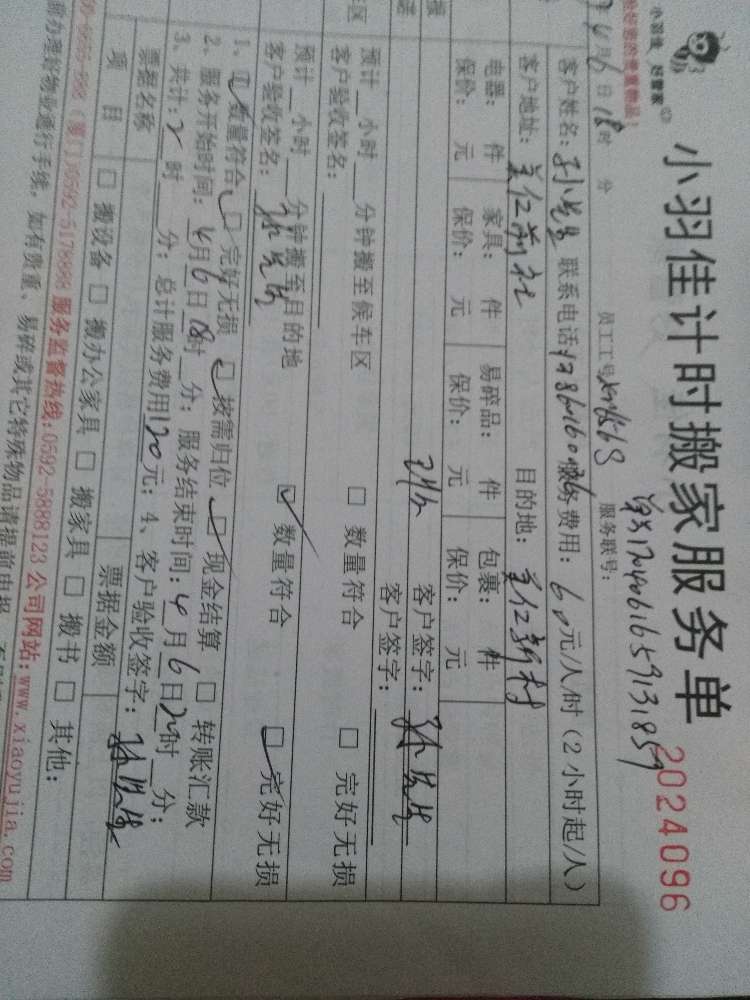 小羽佳 好管家
小羽佳计时搬家服务单
2024096
月6日18时 分 员工工号 服务联号:
客户姓名:孙先生 联系电话 服务费用:60元/人/时(2小时起/人)
客户地址: 目的地:
电器: 件 家具: 件 易碎品: 件 包裹: 件
保价: 元 保价: 元 保价: 元 保价: 元
客户签字:孙先生
客户签字:
预计__小时__分钟搬至候车区 □ 数量符合 □ 完好无损
客户验收签名:
预计__小时__分钟搬至目的地 ☑ 数量符合 ☑ 完好无损
客户验收签名:孙先生
1、☑ 数量符合 ☑ 完好无损 ☑ 按需归位 ☑ 现金结算 □ 转账汇款
2、服务开始时间:4月6日18时__分;服务结束时间:4月6日20时__分;
3、共计:2时__分;总计服务费用120元;4、客户验收签字:孙先生
票据名称 票据金额
项 目 □ 搬设备 □ 搬办公家具 □ 搬家具 □ 搬书 □ 其他:
(厦门)0592-5178888 服务监督热线:0592-5888123 公司网站:www.xiaoyujia.com
前办理好物业通行手续,如有贵重、易碎或其它特殊物品请提前申报